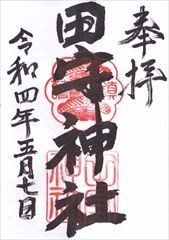 奉拝
田守神社
令和四年五月七日